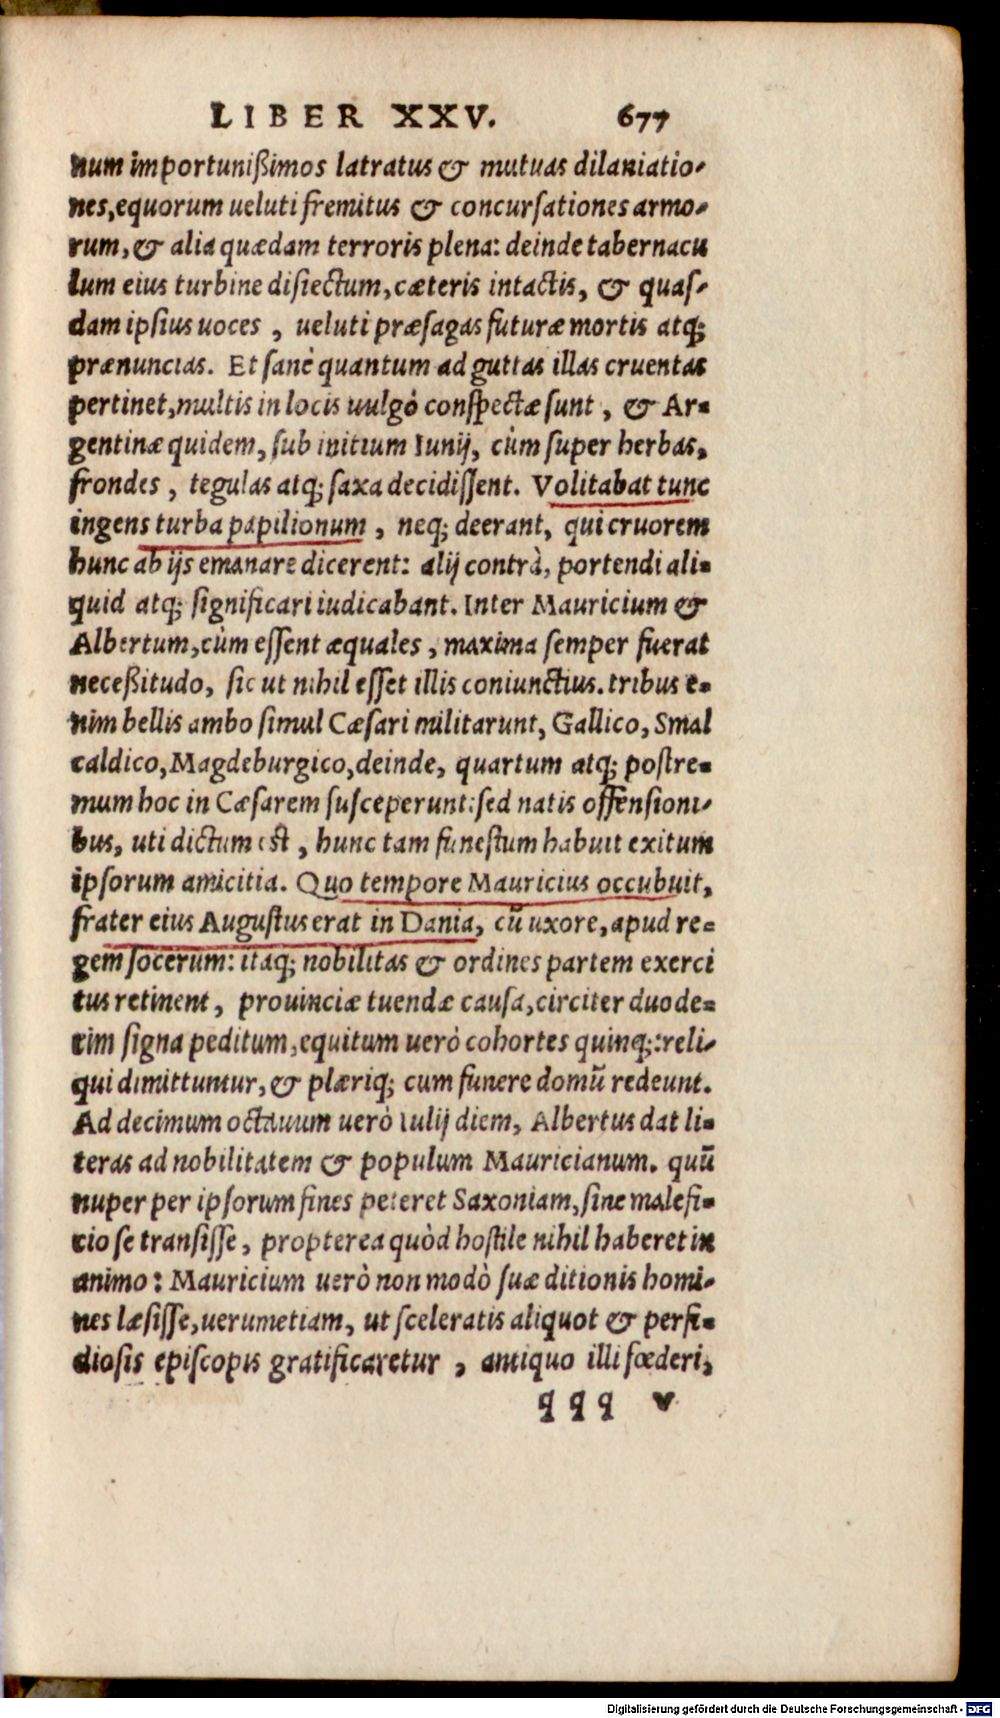 LIBER XXV. 677
num importunißimos latratus & mutuas dilaniatio-
nes, equorum ueluti fremitus & concursationes armo-
rum, & alia quædam terroris plena: deinde tabernacu
lum eius turbine disiectum, cæteris intactis, & quas-
dam ipsius uoces, ueluti præsagas futuræ mortis atq;
prænuncias. Et sanè quantum ad guttas illas cruentas
pertinet, multis in locis uulgò conspectæ sunt, & Ar-
gentinæ quidem, sub initium Iunij, cùm super herbas,
frondes, tegulas atq; saxa decidissent. Volitabat tunc
ingens turba papilionum, neq; deerant, qui cruorem
hunc ab ijs emanare dicerent: alij contrà, portendi ali-
quid atq; significari iudicabant. Inter Mauricium &
Albertum, cùm essent æquales, maxima semper fuerat
neceßitudo, sic ut nihil esset illis coniunctius. tribus e-
nim bellis ambo simul Cæsari militarunt, Gallico, Smal
caldico, Magdeburgico, deinde, quartum atq; postre-
mum hoc in Cæsarem susceperunt: sed natis offensioni-
bus, uti dictum est, hunc tam funestum habuit exitum
ipsorum amicitia. Quo tempore Mauricius occubuit,
frater eius Augustus erat in Dania, cū uxore, apud re-
gem socerum: itaq; nobilitas & ordines partem exerci
tus retinent, prouinciæ tuendæ causa, circiter duode-
cim signa peditum, equitum uerò cohortes quinq;: reli-
qui dimittuntur, & plæriq; cum funere domū redeunt.
Ad decimum octauum uerò Iulij diem, Albertus dat li-
teras ad nobilitatem & populum Mauricianum. quū
nuper per ipsorum fines peteret Saxoniam, sine malefi-
cio se transisse, propterea quòd hostile nihil haberet in
animo: Mauricium uerò non modò suæ ditionis homi-
nes læsisse, uerumetiam, ut sceleratis aliquot & perfi-
diosis episcopis gratificaretur, antiquo illi fœderi,
qqq v
Digitalisierung gefördert durch die Deutsche Forschungsgemeinschaft - DFG